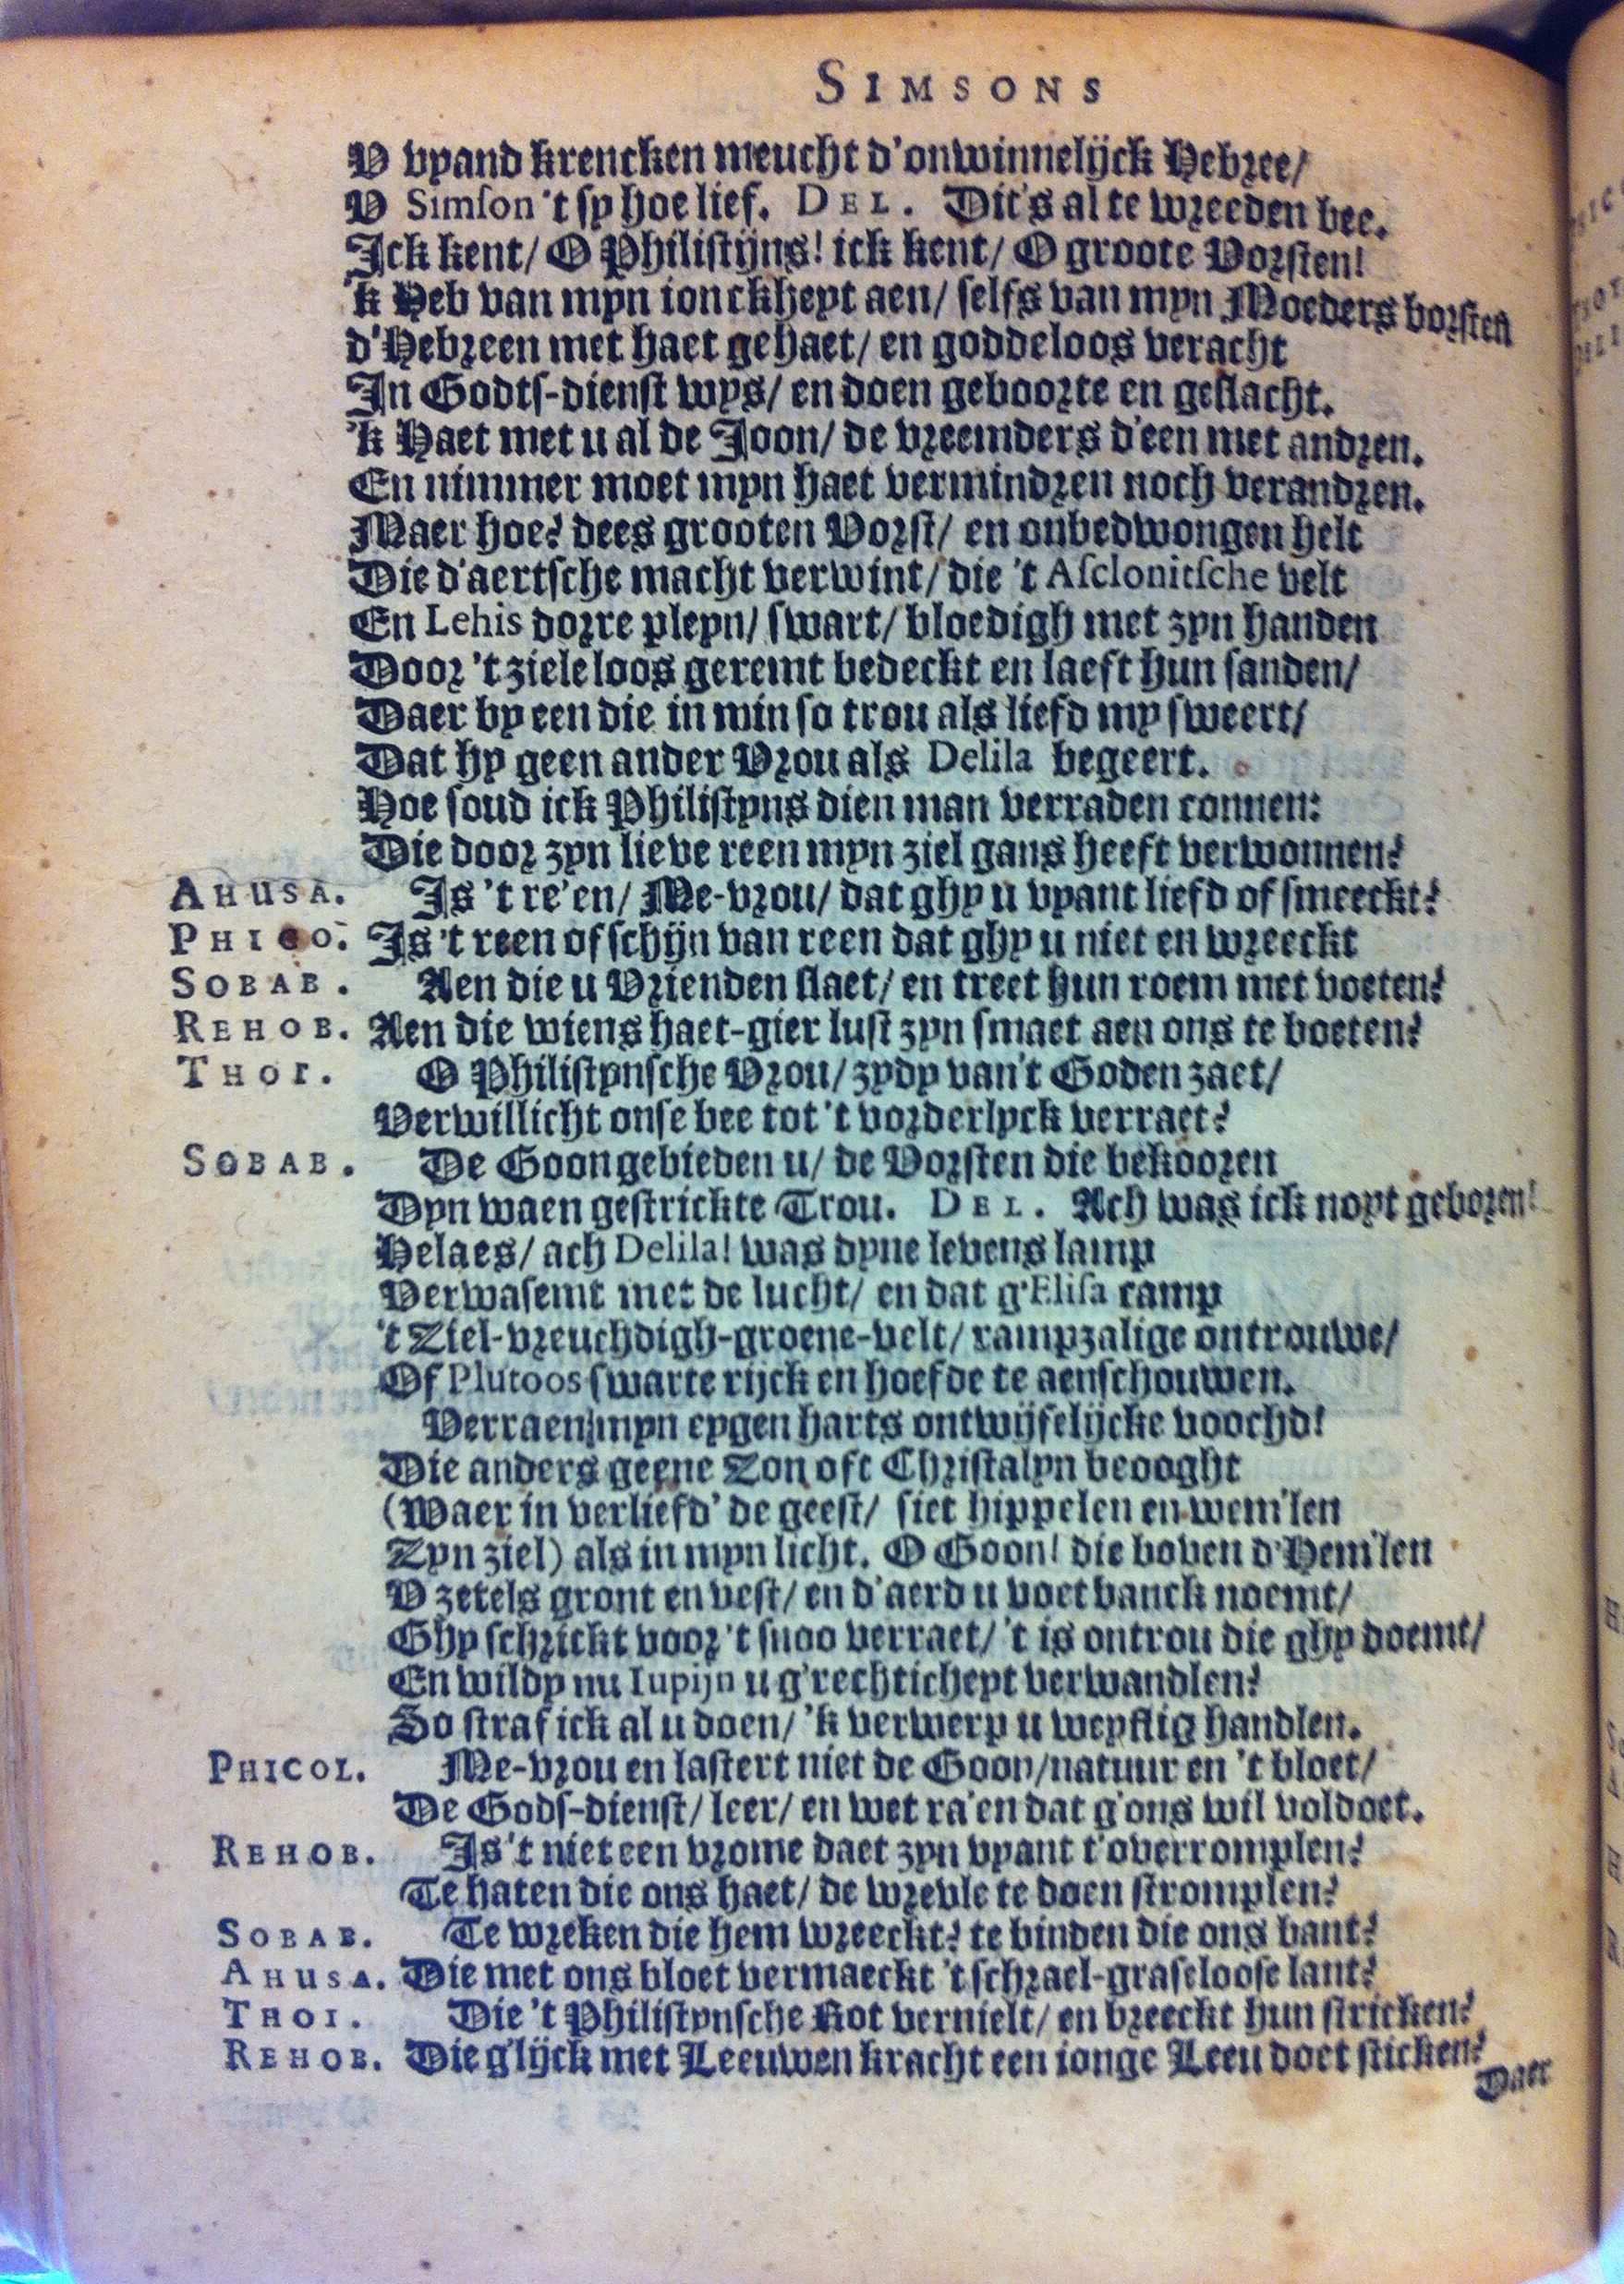 SIMSONS
V vyand krencken meucht d'onwinnelijck Hebree/
V Simson 't sy hoe lief. DEL. Dit's al te wreeden bee.
Ick kent/ O Philistijns! ick kent/ O groote Vorsten!
'k Heb van myn ionckheyt aen/ selfs van myn Moeders borsten
d'Hebreen met haet gehaet/ en goddeloos veracht
In Godts-dienst wys/ en doen geboorte en geslacht.
'k Haet met u al de Joon/ de vreemders d'een met andren.
En nimmer moet myn haet vermindren noch verandren.
Maer hoe? dees grooten Vorst/ en onbedwongen helt
Die d'aertsche macht verwint/ die 't Asclonitsche velt
En Lehis dorre pleyn/ swart/ bloedigh met zyn handen
Door 't zieleloos geremt bedeckt en laeft hun sanden/
Daer by een die in min so trou als liefd my sweert/
Dat hy geen ander Vrou als Delila begeert.
Hoe soud ick Philistyns dien man verraden connen:
Die door zyn lieve reen myn ziel gans heeft verwonnen?
AHUSA. Is 't re'en/ Me-vrou/ dat ghy u vyant liefd of smeeckt?
PHICO. Is 't reen of schijn van reen dat ghy u niet en wreeckt
SOBAB. Aen die u Vrienden slaet/ en treet hun roem met voeten?
REHOB. Aen die wiens haet-gier lust zyn smaet aen ons te boeten?
THOI. O Philistynsche Vrou/ zydy van't Goden zaet/
Verwillicht onse bee tot 't vorderlyck verraet?
SOBAB. De Goon gebieden u/ de Vorsten die bekooren
Dyn waen gestrickte Trou. DEL. Ach was ick noyt geboren!
Helaes/ ach Delila! was dyne levens lamp
Verwasemt met de lucht/ en dat g'Elisa camp
't Ziel-vreuchdigh-groene-velt/ rampzalige ontrouwe/
Of Plutoos swarte rijck en hoefde te aenschouwen.
Verraen/ myn eygen harts ontwijfelijcke voochd!
Die anders geene Zon oft Christalyn beooght
(Waer in verliefd' de geest/ siet hippelen en wem'len
Zyn ziel) als in myn licht. O Goon! die boven d'Hem'len
V zetels gront en vest/ en d'aerd u voetbanck noemt/
Ghy schrickt voor 't snoo verraet/ 't is ontrou die ghy doemt/
En wildy nu Iupijn u g'rechticheyt verwandlen?
So straf ick al u doen/ 'k verwerp u weyflig handlen.
PHICOL. Me-vrou en lastert niet de Goon/ natuur en 't bloet/
De Gods-dienst/ leer/ en wet ra'en dat g'ons wil voldoet.
REHOB. Is 't niet een vrome daet zyn vyant t'overromplen?
Te haten die ons haet/ de wrevle te doen stromplen?
SOBAB. Te wreken die hem wreeckt? te binden die ons bant?
AHUSA. Die met ons bloet vermaeckt 't schrael-graseloose lant?
THOI. Die 't Philistynsche Rot vernielt/ en breeckt hun stricken?
REHOB. Die g'lijck met Leeuwen kracht een ionge Leeu doet sticken?
Daer